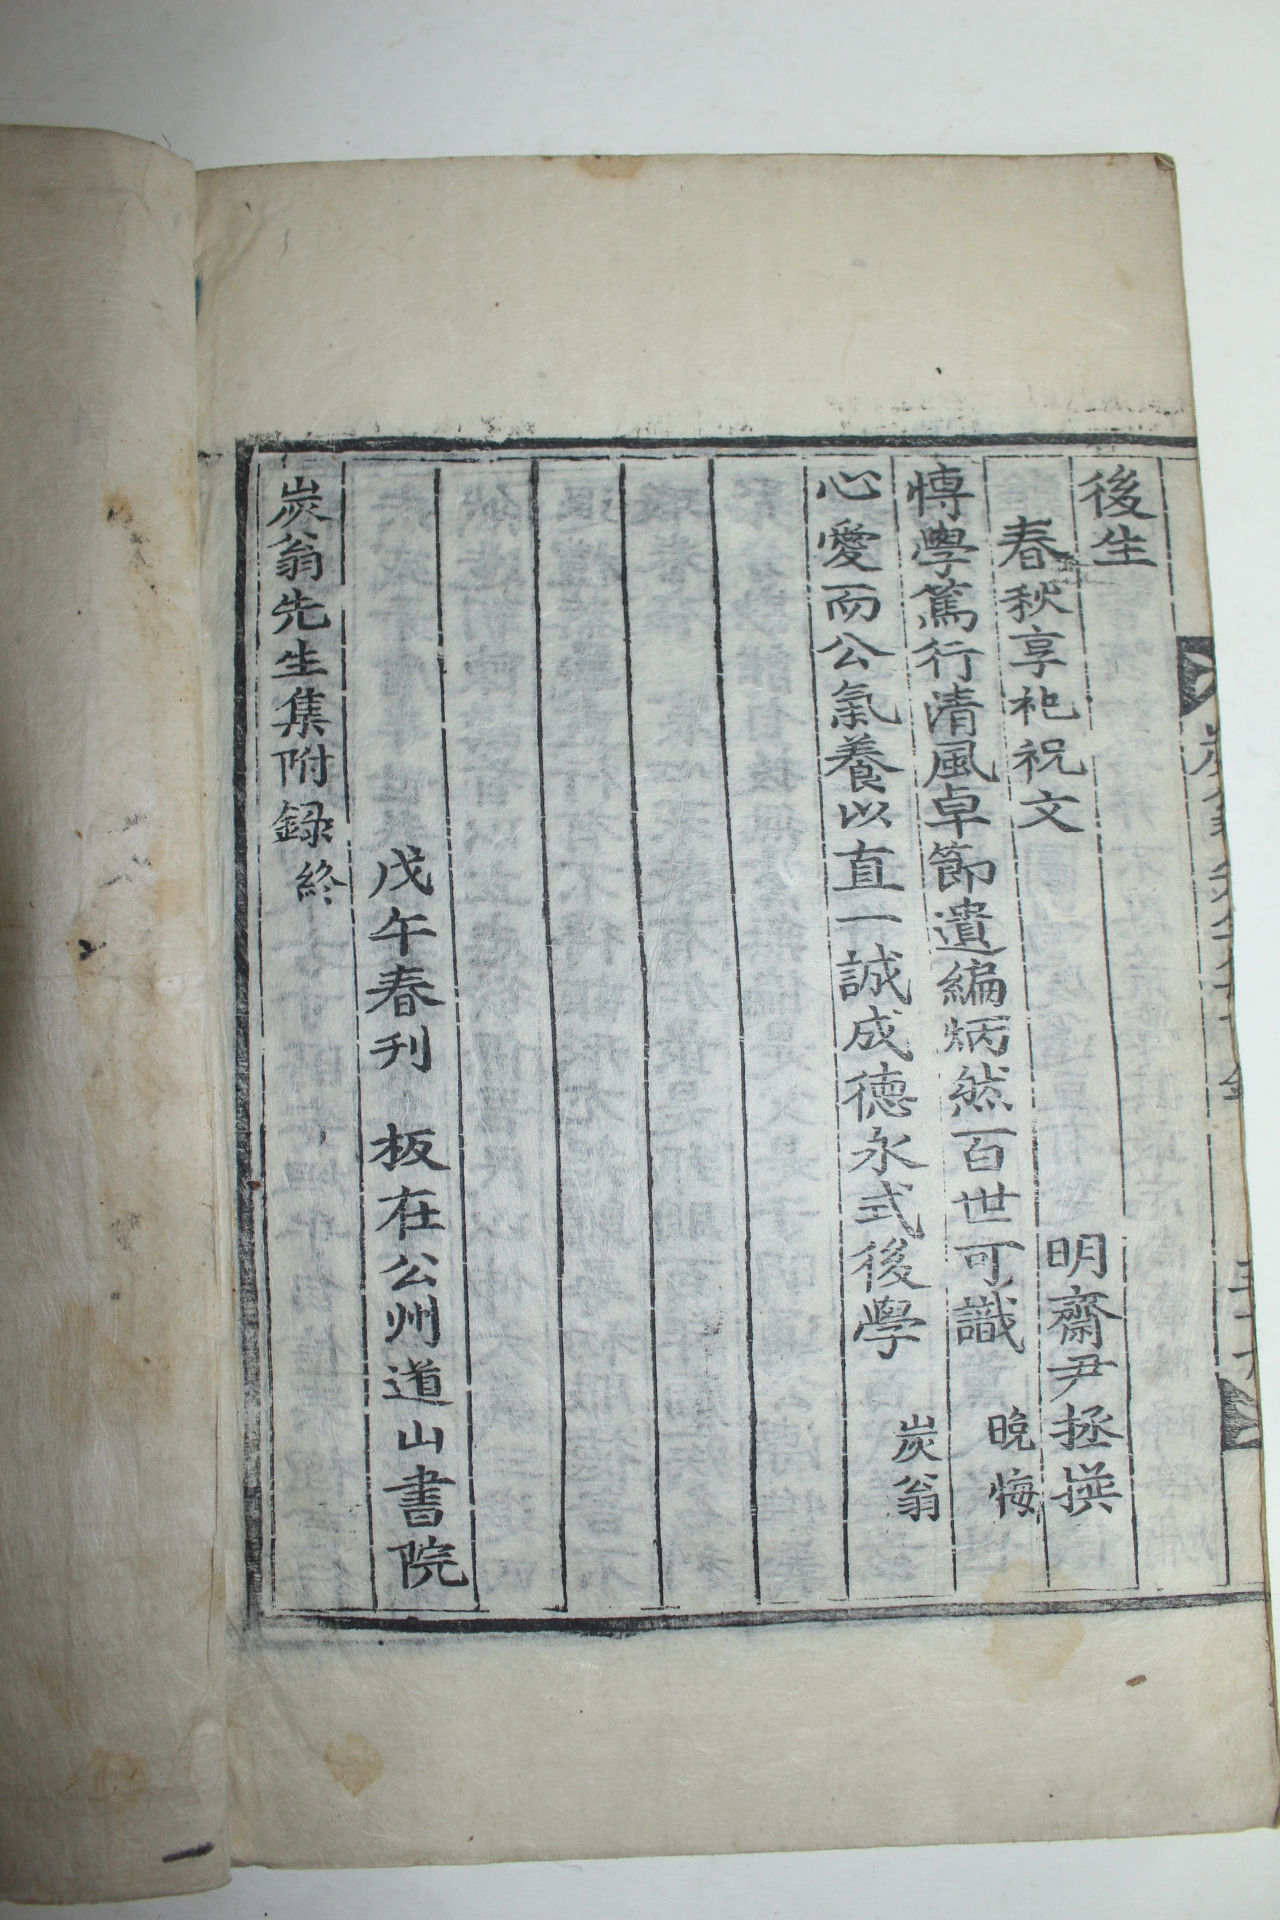 後生
春秋享祀祝文 明齋尹拯撰
愽學篤行清風卓節遺編炳然百世可識 晩悔
心愛而公氣養以直一誠成德永式後學 炭翁
戊午春刊 板在公州道山書院
炭翁先生集附録終